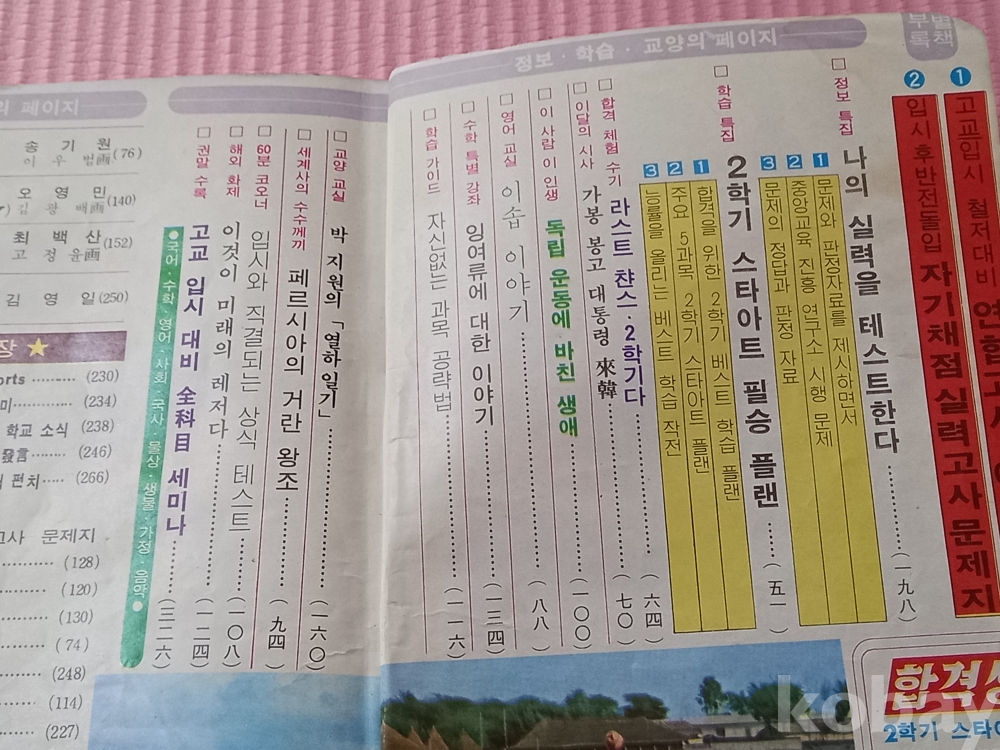 별책
부록
1 고교입시 철저대비
2 입시 후반전돌입 자기채점실력고사문제지
정보 · 학습 · 교양의 페이지
□ 정보 특집 나의 실력을 테스트한다 (一九八)
1 문제와 판정자료를 제시하면서
2 중앙교육 진흥 연구소 시행 문제
3 문제의 정답과 판정 자료
□ 학습 특집 2학기 스타아트 필승 플랜 (五一)
1 합격을 위한 2학기 베스트 학습 플랜
2 주요 5과목 2학기 스타아트 플랜
3 능률을 올리는 베스트 학습 작전
□ 합격 체험 수기 라스트 챤스·2학기다 (六四)
□ 이달의 시사 가봉 봉고 대통령 來韓 (七〇)
□ 이 사람 이 인생 독립 운동에 바친 생애 (一〇〇)
□ 영어 교실 이솝 이야기 (八八)
□ 수학 특별 강좌 잉여류에 대한 이야기 (一三四)
□ 학습 가이드 자신없는 과목 공략법 (一一六)
□ 교양 교실 박 지원의 「열하일기」 (一六〇)
□ 세계사의 수수께끼 페르시아의 거란 왕조 (九四)
□ 60분 코오너 입시와 직결되는 상식 테스트 (一〇八)
□ 해외 화제 이것이 미래의 레저다 (一二四)
□ 권말 수록 고교 입시 대비 全科目 세미나 (三二六)
●국어·수학·영어·사회·국사·물상·생물·가정·음악●
의 페이지
송기원
이우범画 (76)
오영민
김광배画 (140)
최백산
고정윤画 (152)
김영일 (250)
장 ★
orts (230)
미 (234)
학교 소식 (238)
發言 (246)
펀치 (266)
고사 문제지
(128)
(120)
(130)
(74)
(248)
(114)
(227)
합격
2학기 스타
kobay